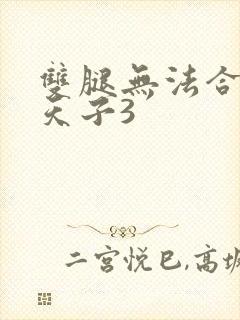 雙腿無法合
天子3
二宮悦巳,高坂